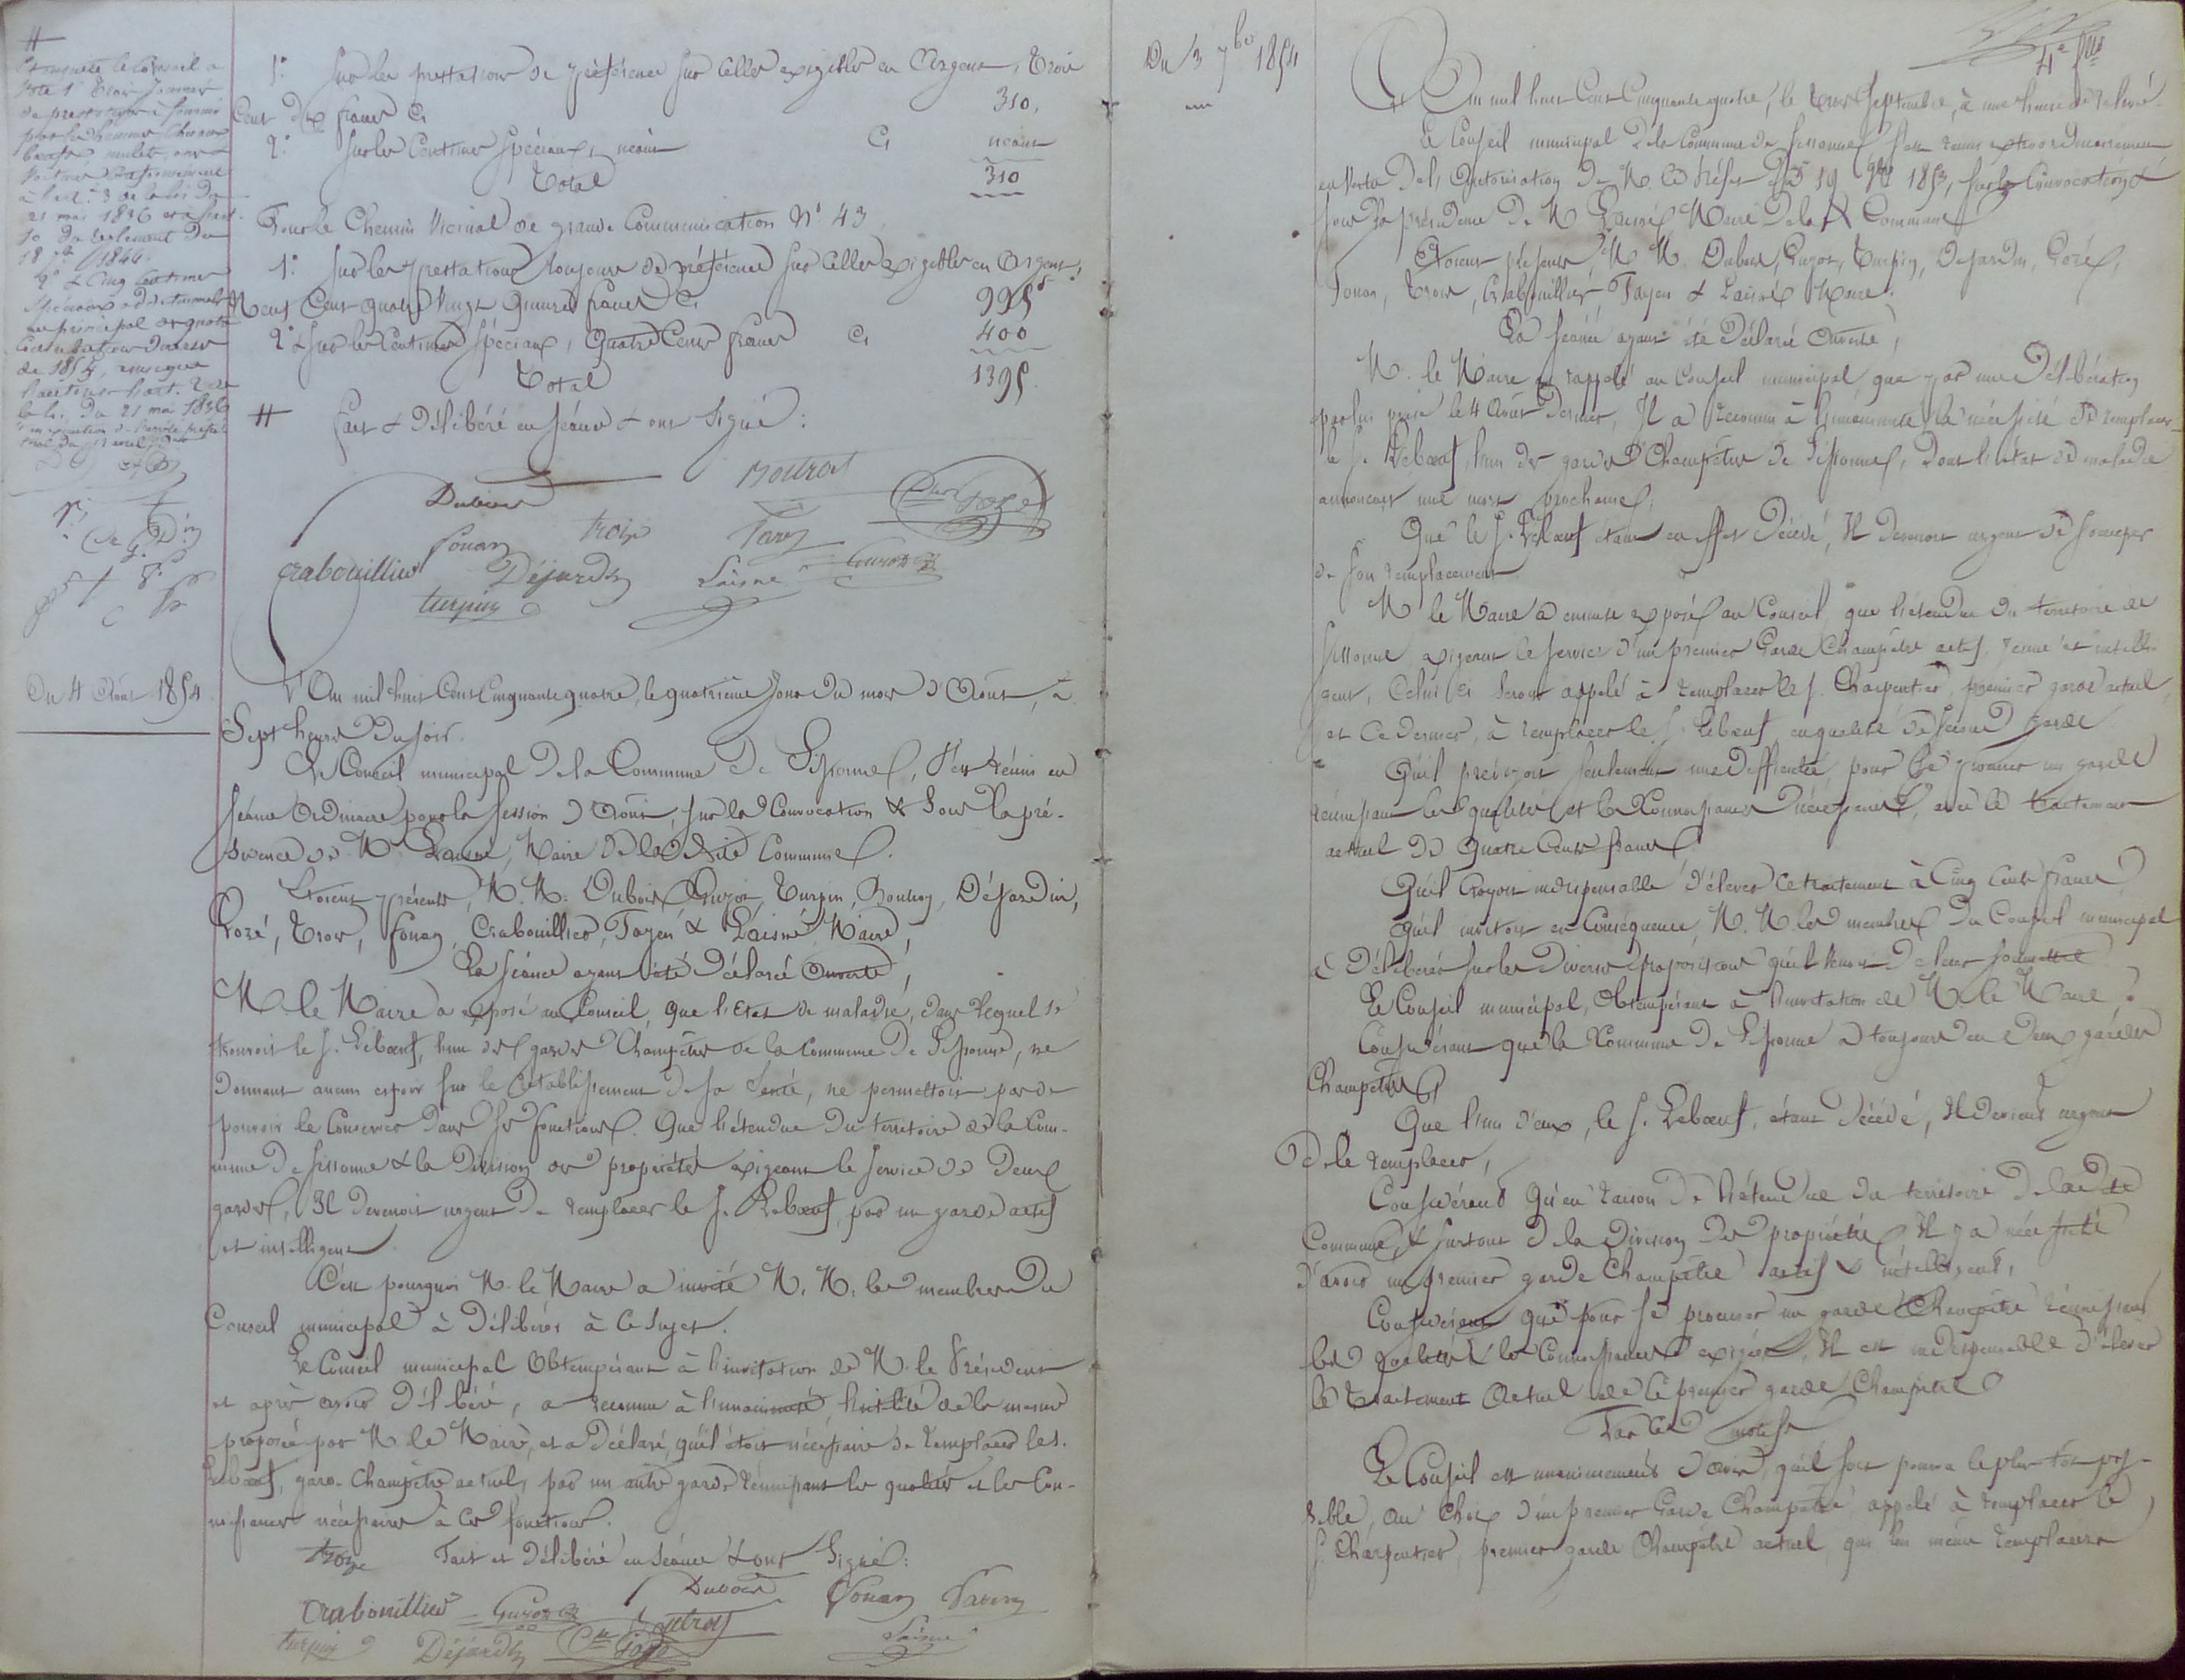 #
Ensuite le Conseil a
voté 1° trois journées
de prestation à fournir
par les hommes, chevaux
mulets, ânes
voitures conformément
à l'art. 3 de la loi du
21 mai 1836 et à l'art.
10 du règlement du
18 1844.
2° & Cinq Centimes
Spéciaux additionnels
au principal des quatre
Contributions directes
de 1854, ainsi que
l'autorise l'art. 2 de
la loi du 21 mai 1836
1° Sur les prestations de préférence sur celles exigibles en Argent, Trois
Cent dix francs Ci 310.
2° Sur les Centimes Spéciaux, néant Ci néant
Total 310
Pour le Chemin Vicinal de grande Communication N° 43
1° Sur les prestations toujours de préférence sur celles exigibles en Argent,
Neuf Cent quatre vingt quinze francs Ci 995
2° Sur les Centimes Spéciaux, Quatre Cents francs Ci 400
Total 1395.
# Fait & Délibéré en séance & ont Signé:
Boutroy
Dubois
Fouan Troize
Crabouillier Déjardin Laisné Guyot
Turpin
Du 4 Août 1854.
L'An mil huit Cent Cinquante quatre, le quatrième jour du mois d'Août, à
Sept heures du soir.
Le Conseil municipal de la Commune de Sissonne, s'est réuni en
séance Ordinaire pour la Session d'Août, sur la Convocation & sous la pré-
sidence de M. Laisné, Maire de la dite Commune.
Etoient présents, M. M. Dubois, Guyot, Turpin, Boutroy, Déjardin,
Lozé, Trois, Fouan, Crabouillier, Tayen & Laisné, Maire,
La séance ayant été déclarée Ouverte,
M. le Maire a exposé au Conseil, que l'Etat de maladie, dans lequel se
trouvoit le S. Leboeuf, l'un des gardes Champêtres de la Commune de Sissonne, ne
donnant aucun espoir sur le rétablissement de sa Santé, ne permettoit pas de
pouvoir le Conserver dans ses fonctions. Que l'étendue du territoire de la Com-
mune de Sissonne & la Division des propriétés exigeant le Service de Deux
gardes, Il devenoit urgent de remplacer le S. Leboeuf, par un garde actif
et intelligent.
C'est pourquoi M. le Maire a invité M. M. les membres du
Conseil municipal à Délibérer à ce Sujet.
Le Conseil municipal Obtempérant à l'invitation de M. le Président
et après avoir délibéré, a reconnu à l'unanimité, l'utilité de la mesure
proposée par M. le Maire, et a Déclaré, qu'il étoit nécessaire de remplacer le S.
Leboeuf, garde Champêtre actuel, par un autre garde réunissant les qualités et les Con-
noissances nécessaires à ces fonctions.
Troize Fait et Délibéré en Séance & ont Signé:
Dubois Fouan
Crabouillier Guyot Boutroy
Turpin Déjardin Lozé Laisné
Du 3 7bre 1854
4e
L'An mil huit Cent Cinquante quatre, le trois Septembre, à une heure de relevé.
Le Conseil municipal de la Commune de Sissonne s'est réuni extraordinairement
en vertu de l'Autorisation de M. le Préfet du 19 1853, sur la Convocation &
sous la présidence de M. Laisné, Maire de la dite Commune
Etoient présents, M. M. Dubois, Guyot, Turpin, Déjardin, Lozé,
Fouan, Trois, Crabouillier, Tayen & Laisné Maire.
La Séance ayant été Déclarée Ouverte,
M. le Maire a rappelé au Conseil municipal que par une Délibération
par lui prise le 4 Août dernier, Il a reconnu à l'unanimité la nécessité de remplacer
le S. Leboeuf, l'un des gardes Champêtres de Sissonne, dont l'état de maladie
annonçait une mort prochaine;
Que le S. Leboeuf étant en effet Décédé, Il devenoit urgent de s'occuper
de son remplacement.
M. le Maire a ensuite exposé au Conseil que l'étendue du territoire de
Sissonne exigeant le Service d'un premier Garde Champêtre actif, jeune et intelli-
gent, Celui ci seroit appelé à remplacer le S. Charpentier, premier garde actuel,
et Ce dernier, à remplacer le S. Leboeuf, en qualité de second garde
Qu'il prévoyoit seulement une difficulté, pour se procurer un garde
réunissant les qualités et les Connoissances nécessaires, avec le traitement
actuel de quatre Cents francs
Qu'il Croyoit indispensable d'élever ce traitement à Cinq Cents francs
Qu'il invitoit en Conséquence, M. M. les membres du Conseil municipal
à Délibérer sur les diverses propositions qu'il venoit de leur soumettre
Le Conseil municipal, Obtempérant à l'invitation de M. le Maire,
Considérant que la Commune de Sissonne a toujours eu deux gardes
Champêtres,
Que l'un d'eux, le S. Leboeuf, étant Décédé, Il devient urgent
de le remplacer,
Considérant Qu'en raison de l'étendue du territoire de la dite
Commune, & surtout de la Division des propriétés, Il y a nécessité
d'avoir un premier garde Champêtre actif & intelligent,
Considérant que pour se procurer un garde Champêtre réunissant
les qualités & les Connoissances exigées, Il est indispensable d'élever
le Traitement Actuel de ce premier garde Champêtre
Par ces motifs
Le Conseil est unanimement d'avis, qu'il soit pourvu le plus tôt pos-
sible, au Choix d'un premier Garde Champêtre, appelé à remplacer le
S. Charpentier, premier garde Champêtre actuel, qui lui même remplacera